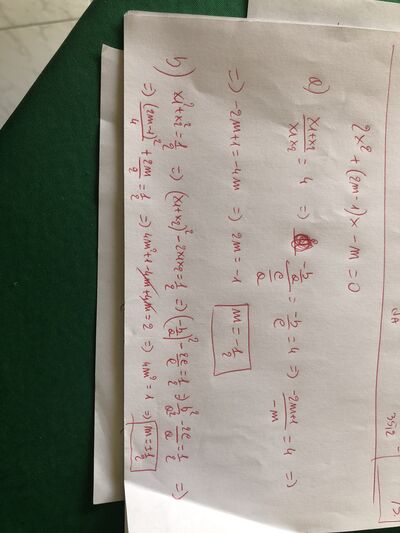 2x² + (2m-1)x - m = 0
a) (x1+x2)/(x1x2) = 4 => (-b/a)/(c/a) = -b/c = 4 => (-2m+1)/(-m) = 4 =>
=> -2m+1 = -4m => 2m = -1 m = -1/2
b) x1² + x2² = 1/2 => (x1+x2)² - 2x1x2 = 1/2 => (-b/a)² - 2c/a = 1/2 => b²/a² - 2c/a = 1/2 =>
=> (2m-1)²/4 + 2m/2 = 1/2 => 4m²+1-4m+4m = 2 => 4m² = 1 => m = ±1/2
NA
3512